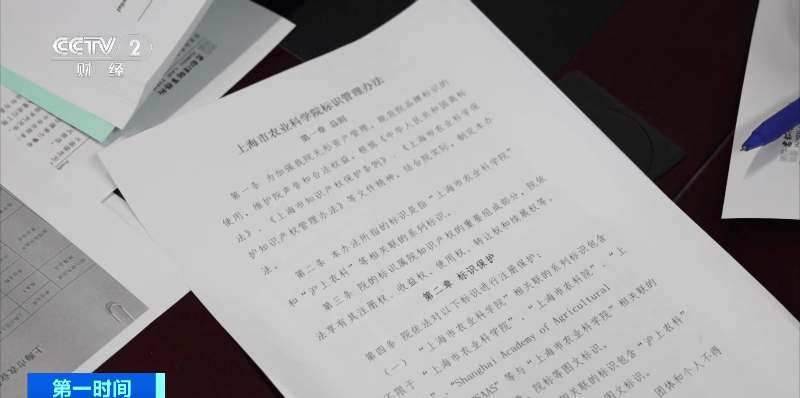 CCTV 2
财经
上海市农业科学院标识管理办法
第一章 总则
第一条 为加强我院无形资产管理，规范院品牌标识的
使用，维护院声誉和合法权益，根据《中华人民共和国商标
法》、《上海市知识产权保护条例》、《上海市农业科学院保
护知识产权管理办法》等文件精神，结合院实际，制定本办
法。
第二条 本办法所指的标识是指“上海市农业科学院”
和“沪上农科”等相关联的系列标识。
第三条 院的标识属院知识产权的重要组成部分，院依
法享有其注册权、收益权、使用权、转让权和续展权等。
第二章 标识保护
第四条 院依法对以下标识进行注册保护：
（一）“上海市农业科学院”相关联的系列标识包含
不限于“上海市农业科学院”、“上海市农科院”、“上
”、“Shanghai Academy of Agricultural
SAAS”等与“上海市农业科学院”相关联的
、院标等图文标识。
相关联的标识包含“沪上农科”
图文标识。
团体和个人不得
上海市农业
第一时间